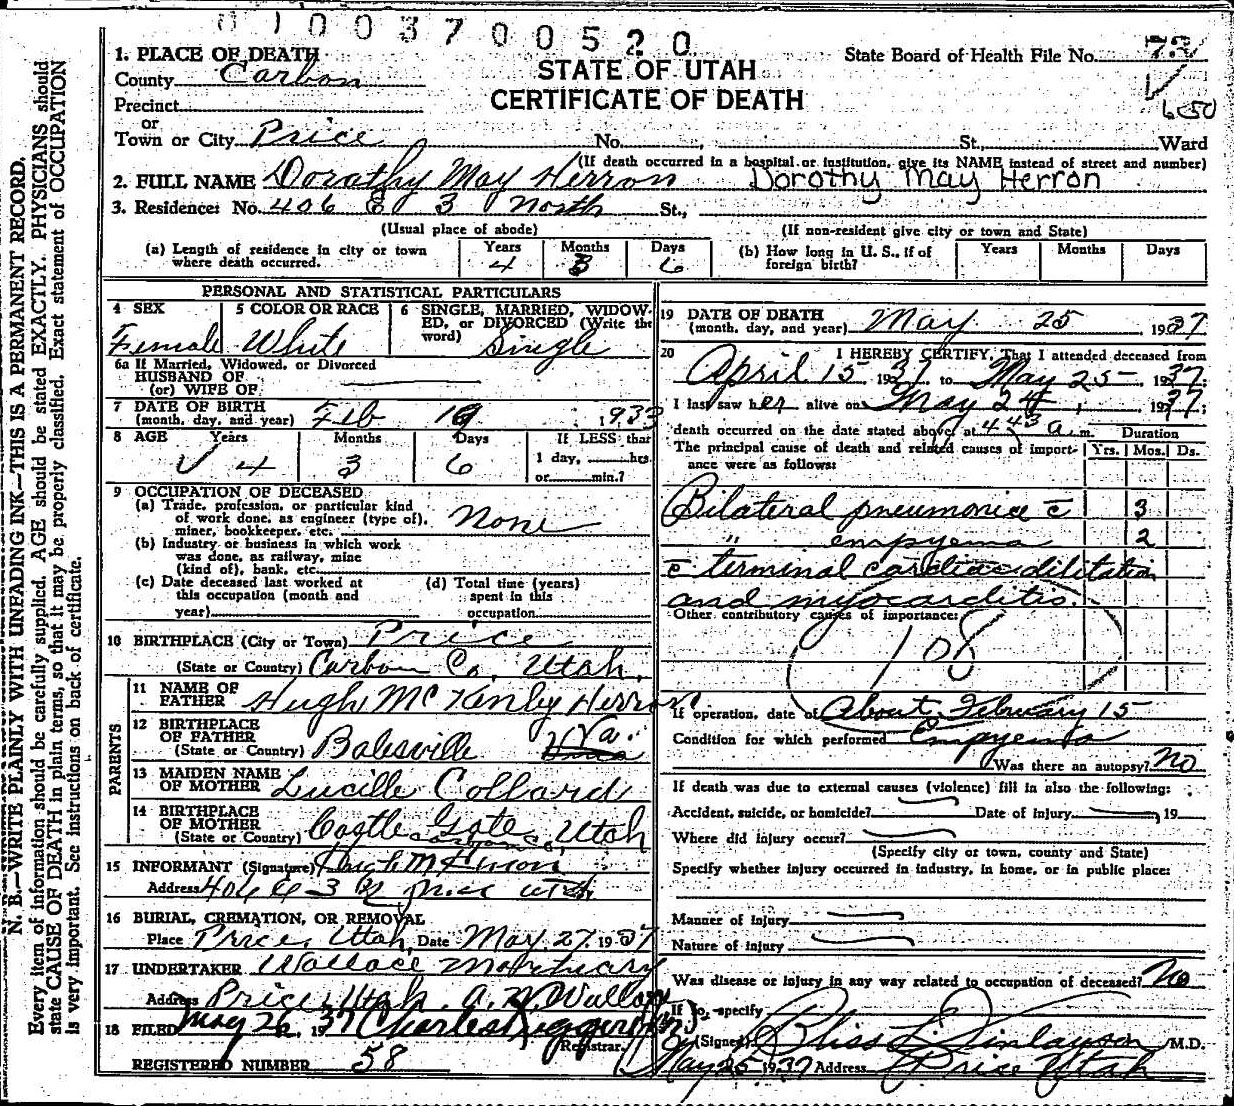 0100370052 0
1. PLACE OF DEATH
STATE OF UTAH
CERTIFICATE OF DEATH
State Board of Health File No. 73
650
County Carbon
Precinct
or
Town or City Price No. , St., Ward
(If death occurred in a hospital or institution, give its NAME instead of street and number)
2. FULL NAME Dorathy May Herron Dorothy May Herron
3. Residence: No. 406 E 3 North St.,
(Usual place of abode) (If non-resident give city or town and State)
(a) Length of residence in city or town where death occurred. Years 4 Months 3 Days 6 (b) How long in U. S., if of foreign birth? Years Months Days
PERSONAL AND STATISTICAL PARTICULARS
4 SEX 5 COLOR OR RACE 6 SINGLE, MARRIED, WIDOWED, or DIVORCED (Write the word)
Female White Single
6a If Married, Widowed, or Divorced
HUSBAND OF
(or) WIFE OF
7 DATE OF BIRTH
(month, day, and year) Feb 19 1933
8 AGE Years Months Days If LESS than
4 3 6 1 day, hrs.
or min.?
9 OCCUPATION OF DECEASED
(a) Trade, profession, or particular kind
of work done, as engineer (type of),
miner, bookkeeper, etc. None
(b) Industry or business in which work
was done, as railway, mine
(kind of), bank, etc.
(c) Date deceased last worked at
this occupation (month and
year)
(d) Total time (years)
spent in this
occupation
10 BIRTHPLACE (City or Town) Price
(State or Country) Carbon Co. Utah.
PARENTS
11 NAME OF
FATHER Hugh McKinley Herron
12 BIRTHPLACE
OF FATHER
(State or Country) Balesville Va.
13 MAIDEN NAME
OF MOTHER Lucille Collard
14 BIRTHPLACE
OF MOTHER
(State or Country) Castle Gate, Utah
15 INFORMANT (Signature)
Address 406 E 3 N price utah
16 BURIAL, CREMATION, OR REMOVAL
Place Price, Utah, Date May 27, 1937
17 UNDERTAKER Wallace Mortuary
Address Price, Utah.
18 FILED May 26, 1937 Charles
Registrar.
REGISTERED NUMBER 58
19 DATE OF DEATH
(month, day, and year) May 25 1937
20 I HEREBY CERTIFY, That I attended deceased from
April 15 1937, to May 25 1937;
I last saw her alive on May 24, 1937;
death occurred on the date stated above, at 4 43 a. m. Duration
The principal cause of death and related causes of importance were as follows: Yrs. Mos. Ds.
Bilateral pneumonia c̄ 3
" empyema 2
c̄ terminal cardiac dilitation
and myocarditis.
Other contributory causes of importance:
108
If operation, date of About February 15
Condition for which performed Empyema
Was there an autopsy? No
If death was due to external causes (violence) fill in also the following:
Accident, suicide, or homicide? Date of injury , 19
Where did injury occur?
(Specify city or town, county and State)
Specify whether injury occurred in industry, in home, or in public place:
Manner of injury
Nature of injury
Was disease or injury in any way related to occupation of deceased? No
If so, specify
(Signed) Bliss L. Finlayson M.D.
May 25 1937 Address Price Utah
N. B.—WRITE PLAINLY WITH UNFADING INK—THIS IS A PERMANENT RECORD.
Every item of information should be carefully supplied. AGE should be stated EXACTLY. PHYSICIANS should
state CAUSE OF DEATH in plain terms, so that it may be properly classified. Exact statement of OCCUPATION
is very important. See instructions on back of certificate.